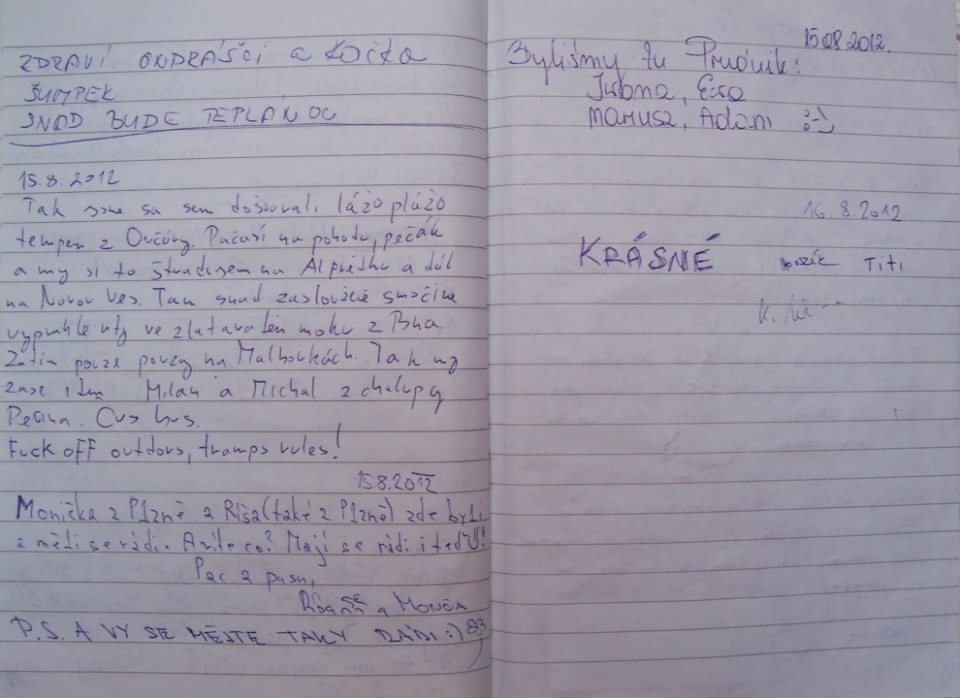 ZDRAVÍ ONDRÁŠCI a KOČKA
ŠUMPEK
SNAD BUDE TEPLÁ NOC
15.8.2012
Tak jsme sa sem došourali lážo plážo
tempem z Ovčárny. Počasí na pohodu, pečák
a my si to štrádujsem na Alprétku a dál
na Novou Ves. Tam snad zasloužené smočíme
vyprahlé rty ve zlatavatém moku z Brna
Zatím pouze pauzy na Malbouškách. Tak my
zase idem Milan a Michal z chalupy
Pečina. Čus bus.
Fuck OFF outdors, tramps rules!
15.8.2012
Monička z Plzně a Ríša (také z Plzně) zde byli
a měli se rádi. A víte co? Mají se rádi i teď!
Pac a pusu,
a Monča
P.S. A VY SE MĚJTE TAKY RÁDI :)
15.08.2012.
Byliśmy tu Prudnik!
Iwona, Ewa
Mariusz, Adam :-)
16.8.2012
KRÁSNÉ Titi